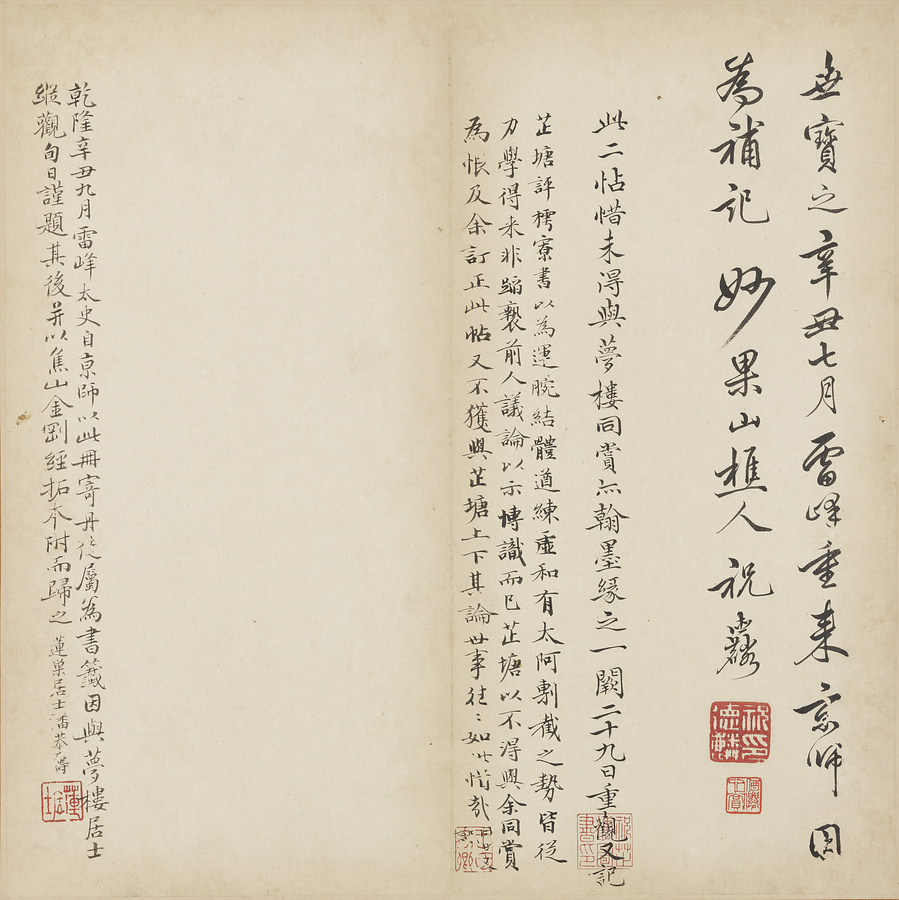 無寶之辛丑七月雷峰重来京師因
為補記 妙果山樵人祝德麟
此二帖惜未得與夢樓同賞亦翰墨緣之一闕二十九日重觀又記
芷塘評樗寮書以為運腕結體遒練虛和有太阿剸截之勢皆從
力學得来非蹈襲前人議論以示博識而已芷塘以不得與余同賞
為悵及余訂正此帖又不獲與芷塘上下其論世事往〻如此惜哉
乾隆辛丑九月雷峰太史自京師以此冊寄丹徒屬為書籤因與夢樓居士
縱觀旬日謹題其後并以焦山金剛經拓本附而歸之 蓮巢居士潘恭壽